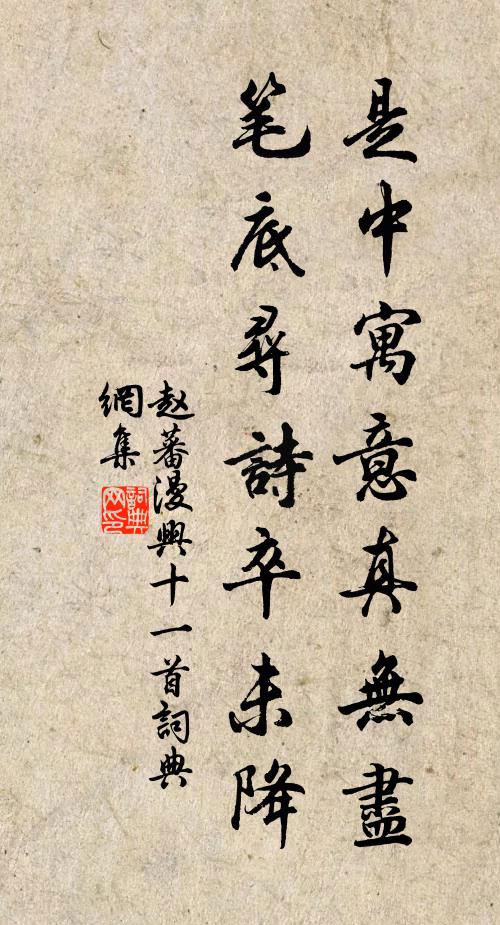 是中寓意真無盡
笔底尋詩卒未降
赵蕃漫興十一首詞典
網集
詞典
网印